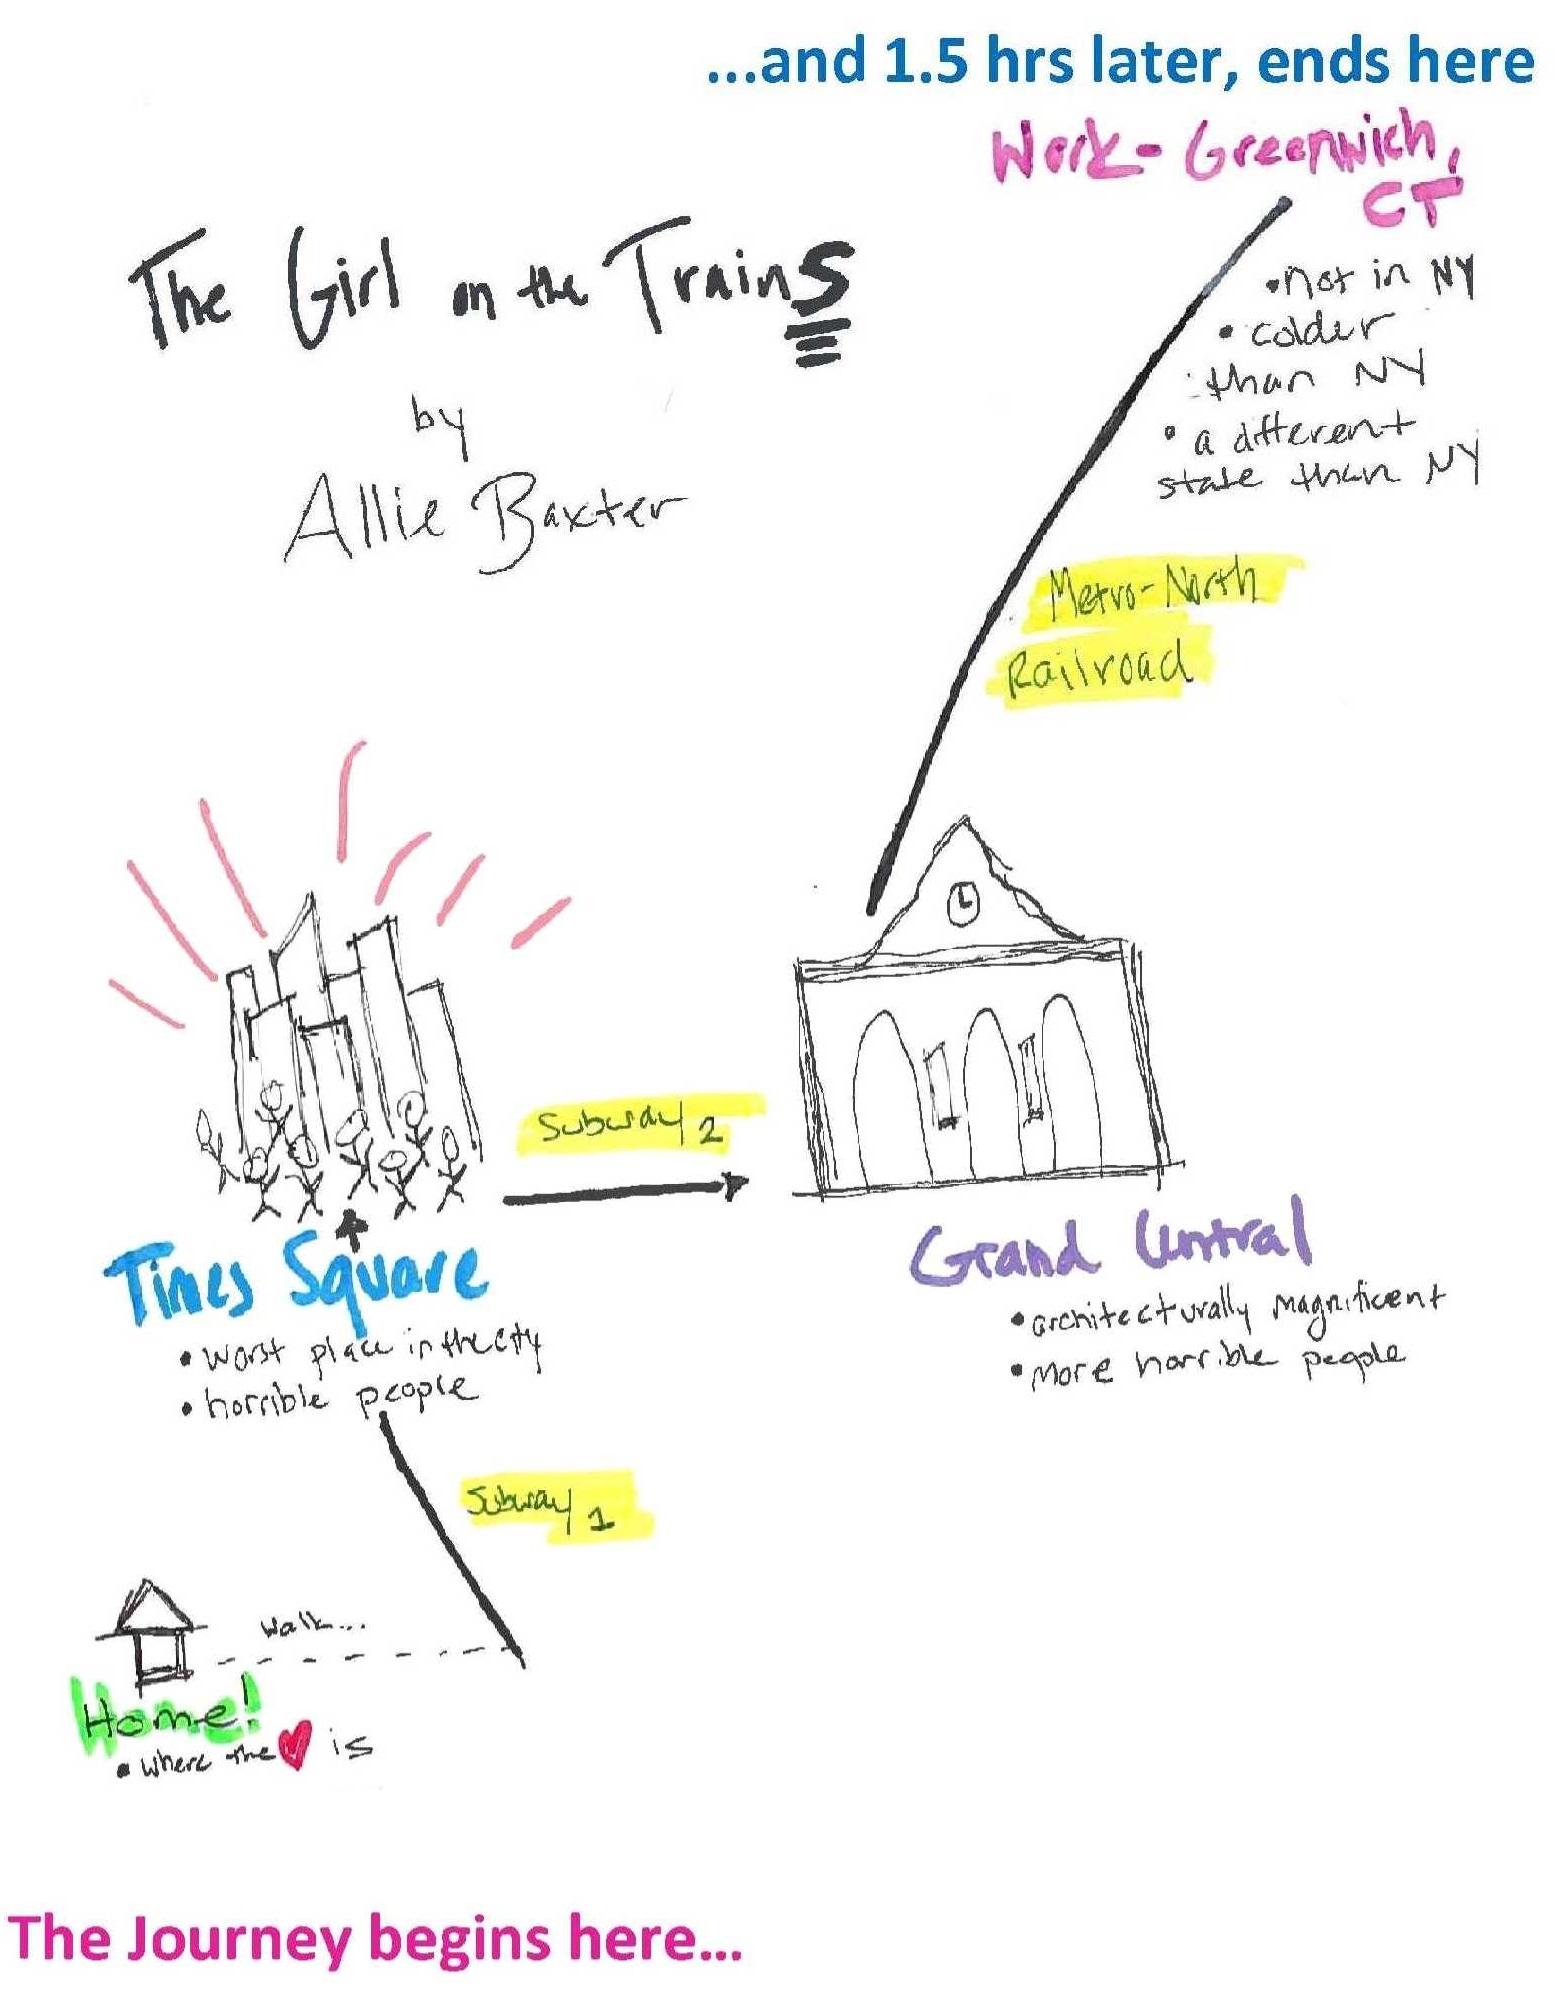 ...and 1.5 hrs later, ends here
Work - Greenwich,
CT
• not in NY
• colder
than NY
• a different
state than NY
The Girl on the Trains
by
Allie Baxter
Metro-North
Railroad
Subway 2
Times Square
• worst place in the city
• horrible people
Grand Central
• architecturally magnificent
• more horrible people
Subway 1
Walk...
Home!
• where the ♥ is
The Journey begins here...